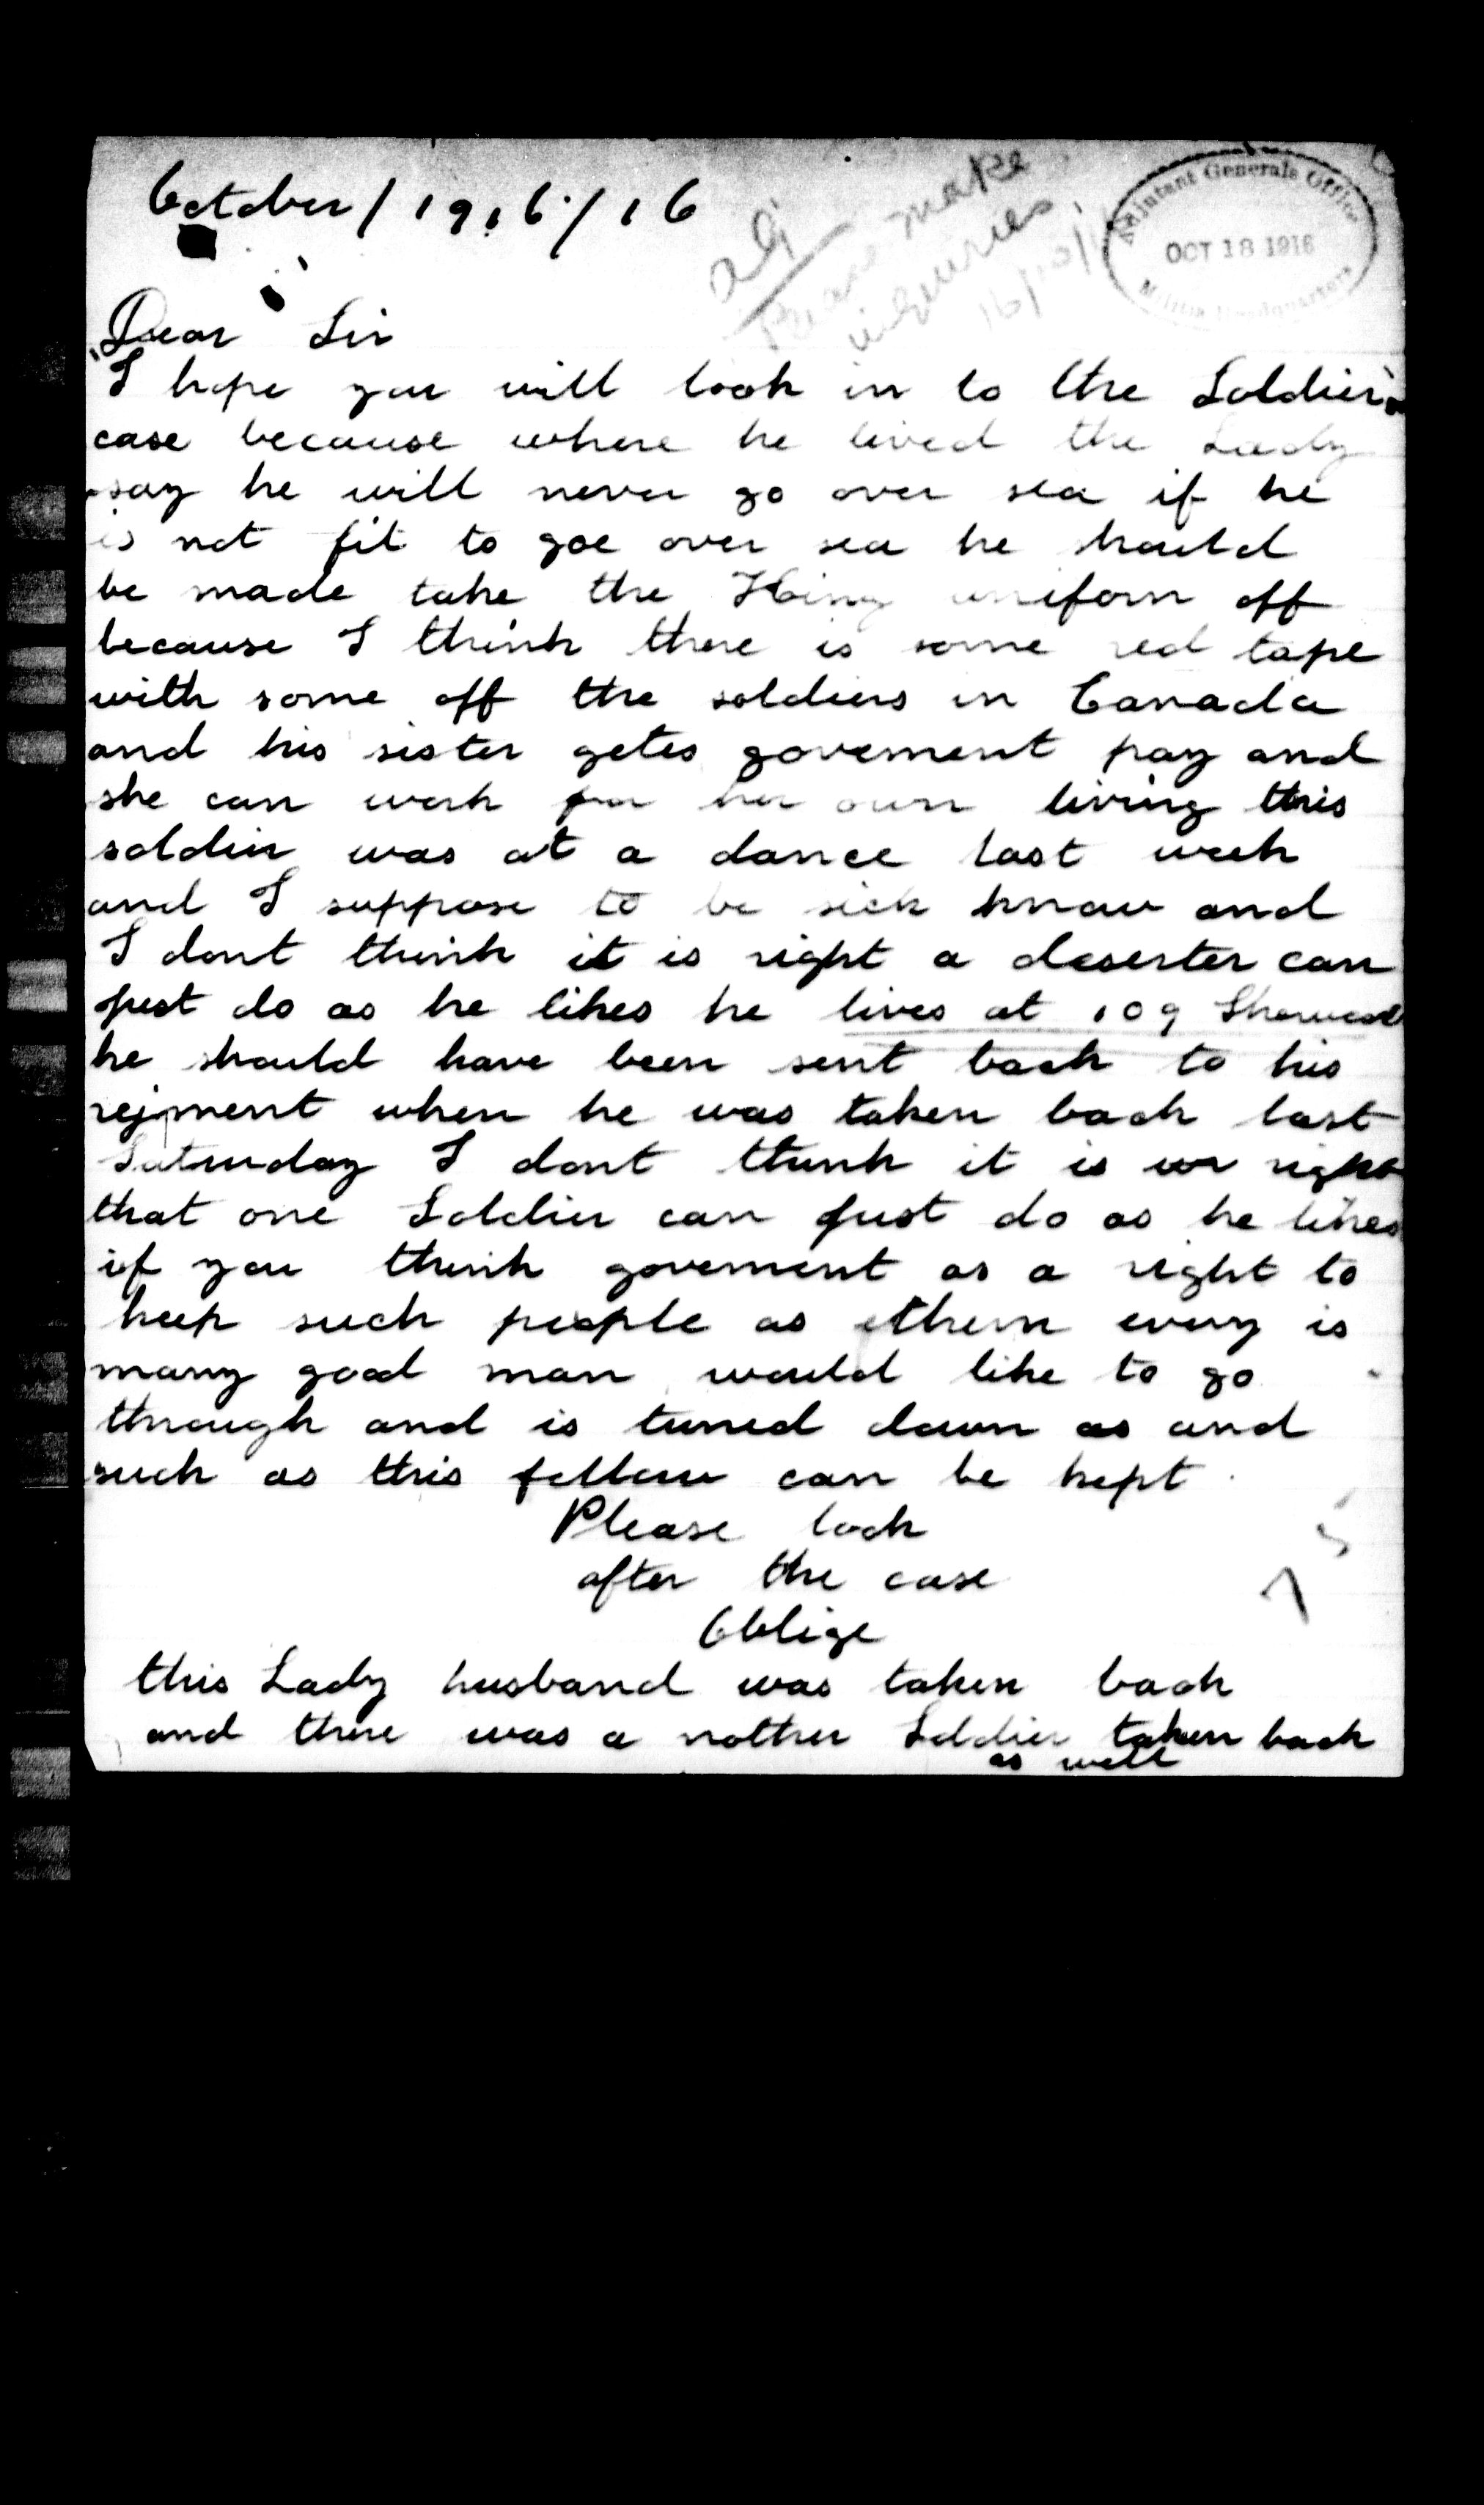 October / 1916 / 16
AG
Please make
inquiries
16/10/16
Adjutant Generals Office
OCT 18 1916
Militia Headquarters
Dear Sir
I hope you will look in to the Soldier
case because where he lived the Lady
say he will never go over sea if he
is not fit to goe over sea he should
be made take the King uniform off
because I think there is some red tape
with some off the soldiers in Canada
and his sister getes goverment pay and
she can work for her own living this
soldier was at a dance last week
and I suppose to be sick know and
I dont think it is right a deserter can
just do as he likes he lives at 109
he should have been sent back to his
rejment when he was taken back last
Saturday I dont think it is right
that one Soldier can just do as he likes
if you think goverment as a right to
keep such people as them every is
many good man would like to go
through and is turned down as and
such as this fellow can be kept
Please look
after the case
Oblige
this Lady husband was taken back
and there was a nother Soldier taken back
as well